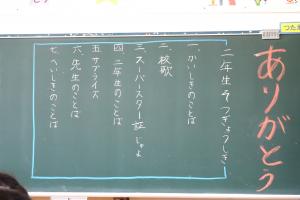 ありがとう
二年生 そつぎょうしき
一、かいしきのことば
二、校歌
三、スーパースター証 じゅよ
四、二年生のことば
五、サプライズ
六、先生のことば
七、へいしきのことば